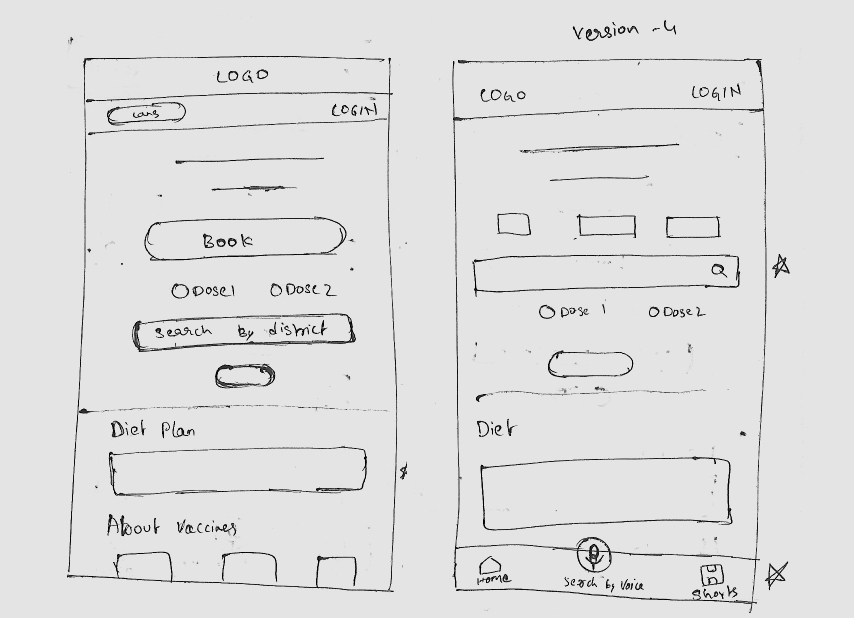 Version -4
LOGO
LOGIN
Book
Dose1 Dose2
Search by district
Diet Plan
About Vaccines
LOGO LOGIN
Dose 1 Dose2
Diet
Home Search by Voice Shorts